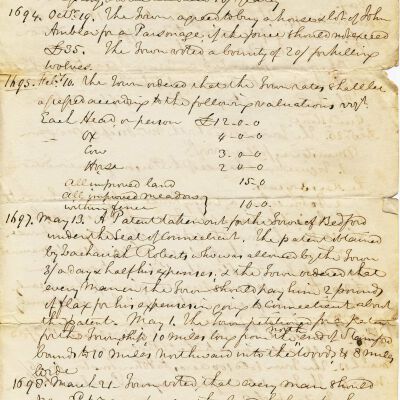 1694. Oct. 19. The Town agreed to buy a house & lot of John
Ambler for a Parsonage, if the price should not exceed
£35. The Town voted a bounty of 20/ for killing
wolves.
1695. Feb. 10. The Town ordered that the Town rates shall be
assessed according to the following valuations viz.
Each Head or person £12-0-0
Ox 4-0-0
Cow 3-0-0
Horse 2-0-0
All improved land 15-0
All improved meadows
within fence } 10-0
1697. May 13. A Patent taken out for the Town of Bedford
under the Seal of Connecticut. The patent obtained
by Zachariah Roberts who was allowed by the Town
3/ a day & half his expenses. & the Town ordered that
every man in the Town should pay him 2 pounds
of flax for his expenses in going to Connecticut about
the Patent. May 1. The Town petitioned for a Patent
for the Township 10 miles long from the north end of Stamford
bounds to 10 miles northward into the woods & 8 miles
wide
1698. March 21. Town voted that every man should